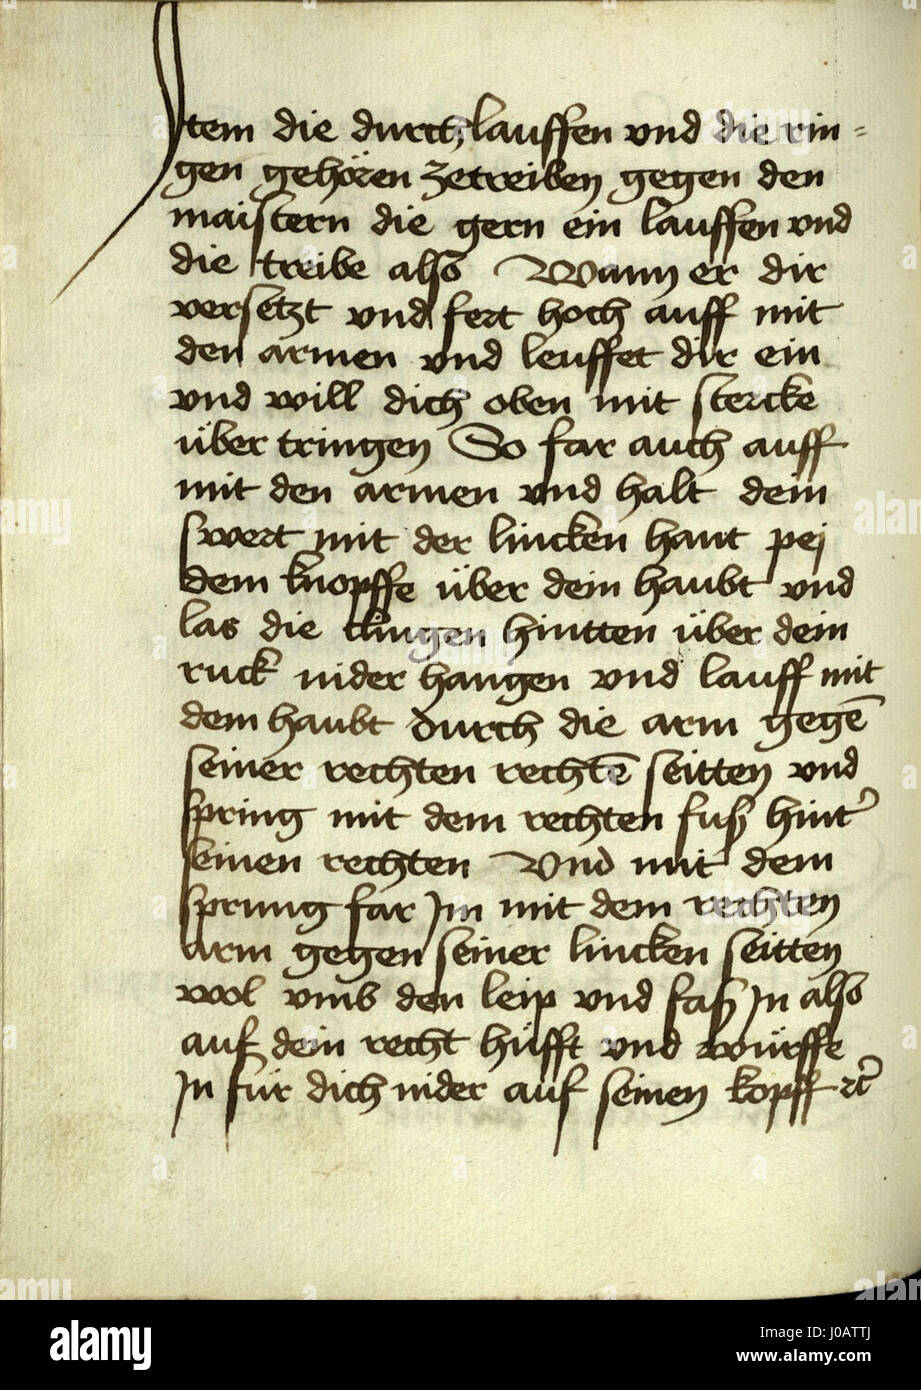 Item die durchlauffen vnd die rin=
gen gehören zetreiben gegen den
maistern die gern ein lauffen vnd
die treibe also Wann er dir
versetzt vnd fert hoch auff mit
den armen vnd leuffet dir ein
vnd will dich oben mit stercke
über tringen So far auch auff
mit den armen vnd halt dein
swert mit der lincken hant pej
dem knopffe über dein haubt vnd
las die clingen hintten über dein
ruck nider hangen vnd lauff mit
dem haubt durch die arm gegē
seiner rechten rechtē seitten vnd
spring mit dem rechten fuß hint͛
seinen rechten Vnd mit dem
sprung far Jm mit dem rechten
arm gegen seiner lincken seitten
wol vmb den leip vnd faß Jn also
auf dein recht hüfft vnd würffe
Jn für dich nider auf seinen kopff rc͛
alamy
Image ID: J0ATTJ
www.alamy.com